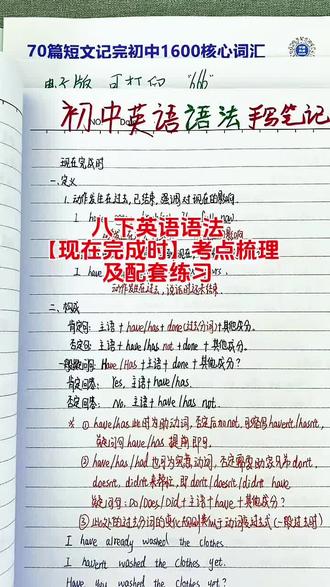 70篇短文记完初中1600核心词汇
电子版 可打印 "666"
初中英语语法手写笔记
No. Date
现在完成时
一、定义
1. 动作发生在过去,已结束,强调对现在的影响
八下英语语法
【现在完成时】考点梳理
及配套练习
I have
动作发生在过去,说话时还未结束.
二、构成
肯定句: 主语 + have/has + done(过去分词) + 其他成分.
否定句: 主语 + have/has not + done + 其他成分.
一般疑问句: Have/Has + 主语 + done + 其他成分?
肯定回答: Yes, 主语 + have/has.
否定回答: No, 主语 + have/has not.
※ ① have/has 此时为助动词, 否定后加not, 可缩写 haven't/hasn't,
疑问句 have/has 提前即可.
② have/has/had 也可为实意动词, 否定需要助家兄弟 don't,
doesn't, didn't 来帮忙, 即 don't/doesn't/didn't have
疑问句: Do/Does/Did + 主语 + have + 其他成分?
③ 此处的过去分词的变化规则类似于动词过去式(一般过去时)
I have already washed the clothes.
I haven't washed the clothes yet.
Have you washed the clothes yet?